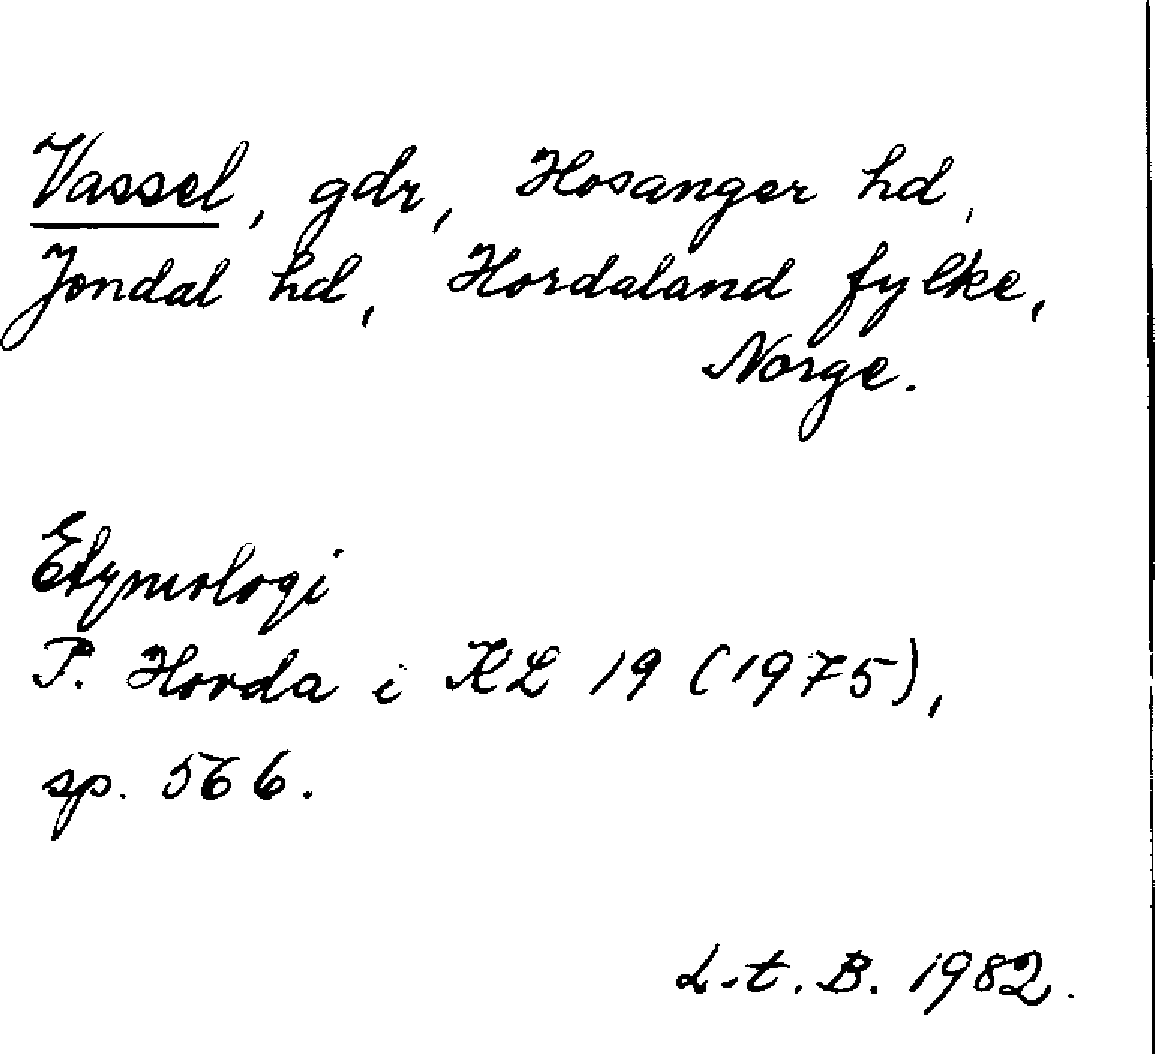 Vassel, gdr, Hosanger hd,
Jondal hd, Hordaland fylke,
Norge.
Etymologi
P. Hovda i KL 19 (1975),
sp. 566.
L.t.B. 1982.